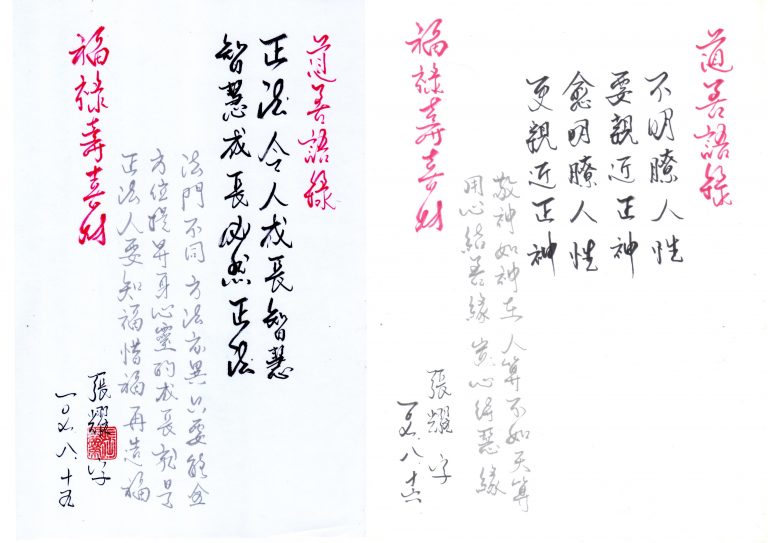 道善語錄
正法令人成長智慧
智慧成長必然正法
法門不同 方法亦異只要能全
方位提昇身心靈的成長就是
正法人要知福惜福再造福
福祿壽喜財
張耀 字
八、十五
道善語錄
不明瞭人性
要親近正神
愈明瞭人性
更親近正神
敬神如神在 人算不如天算
用心結善緣 心得慧緣
福祿壽喜財
張耀 字
八、十六